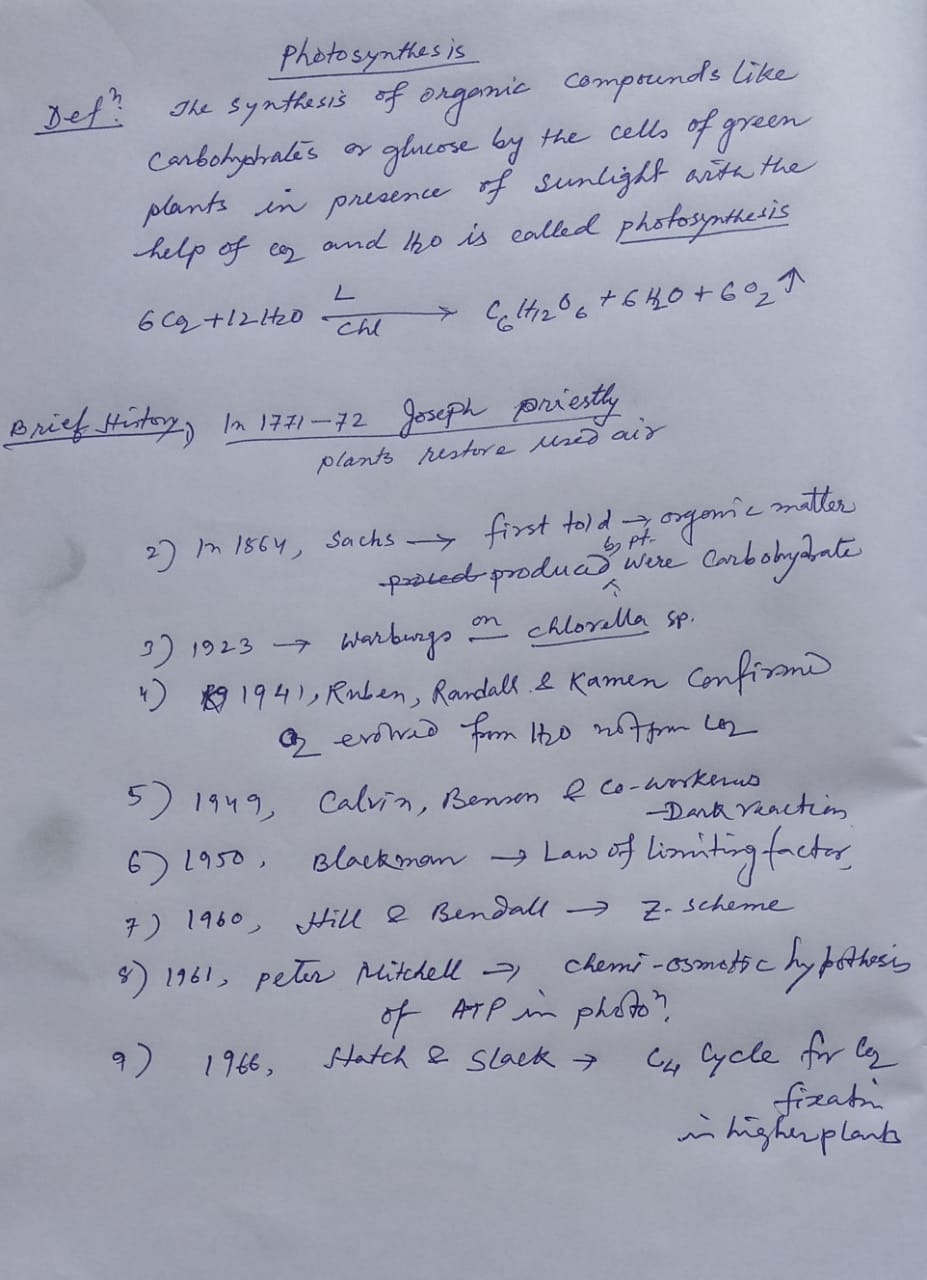 Photosynthesis
Defⁿ: The synthesis of organic compounds like
carbohydrates or glucose by the cells of green
plants in presence of sunlight with the
help of CO₂ and H₂O is called photosynthesis
6CO₂ + 12H₂O L/Chl → C₆H₁₂O₆ + 6H₂O + 6O₂ ↑
Brief History, In 1771-72 Joseph Priestly
plants restore used air
2) In 1864, Sachs → first told → organic matter
produced by pt. were Carbohydrate
3) 1923 → Warburgs on chlorella sp.
4) 1941, Ruben, Randall & Kamen Confirmed
O₂ evolved from H₂O not from CO₂
5) 1949, Calvin, Benson & Co-workerus
- Dark reaction
6) 1950, Blackman → Law of limiting factor,
7) 1960, Hill & Bendall → Z-scheme
8) 1961, peter Mitchell → chemi-osmotic hypothesis
of ATP in photoⁿ.
9) 1966, Hatch & Slack → C₄ Cycle for CO₂
fixatn
in higher plants